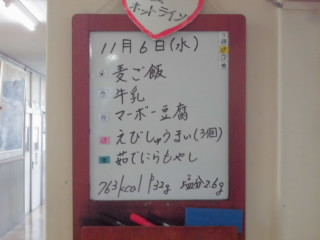 ホットライン
11月6日(水)
麦ご飯
牛乳
マーボー豆腐
えびしゅうまい(3個)
茹でにらもやし
763kcal P32g 塩分2.6g